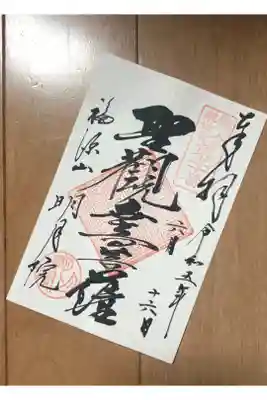 奉拝
令和五年
六月
十六日
聖觀世音菩薩
福源山
明月院